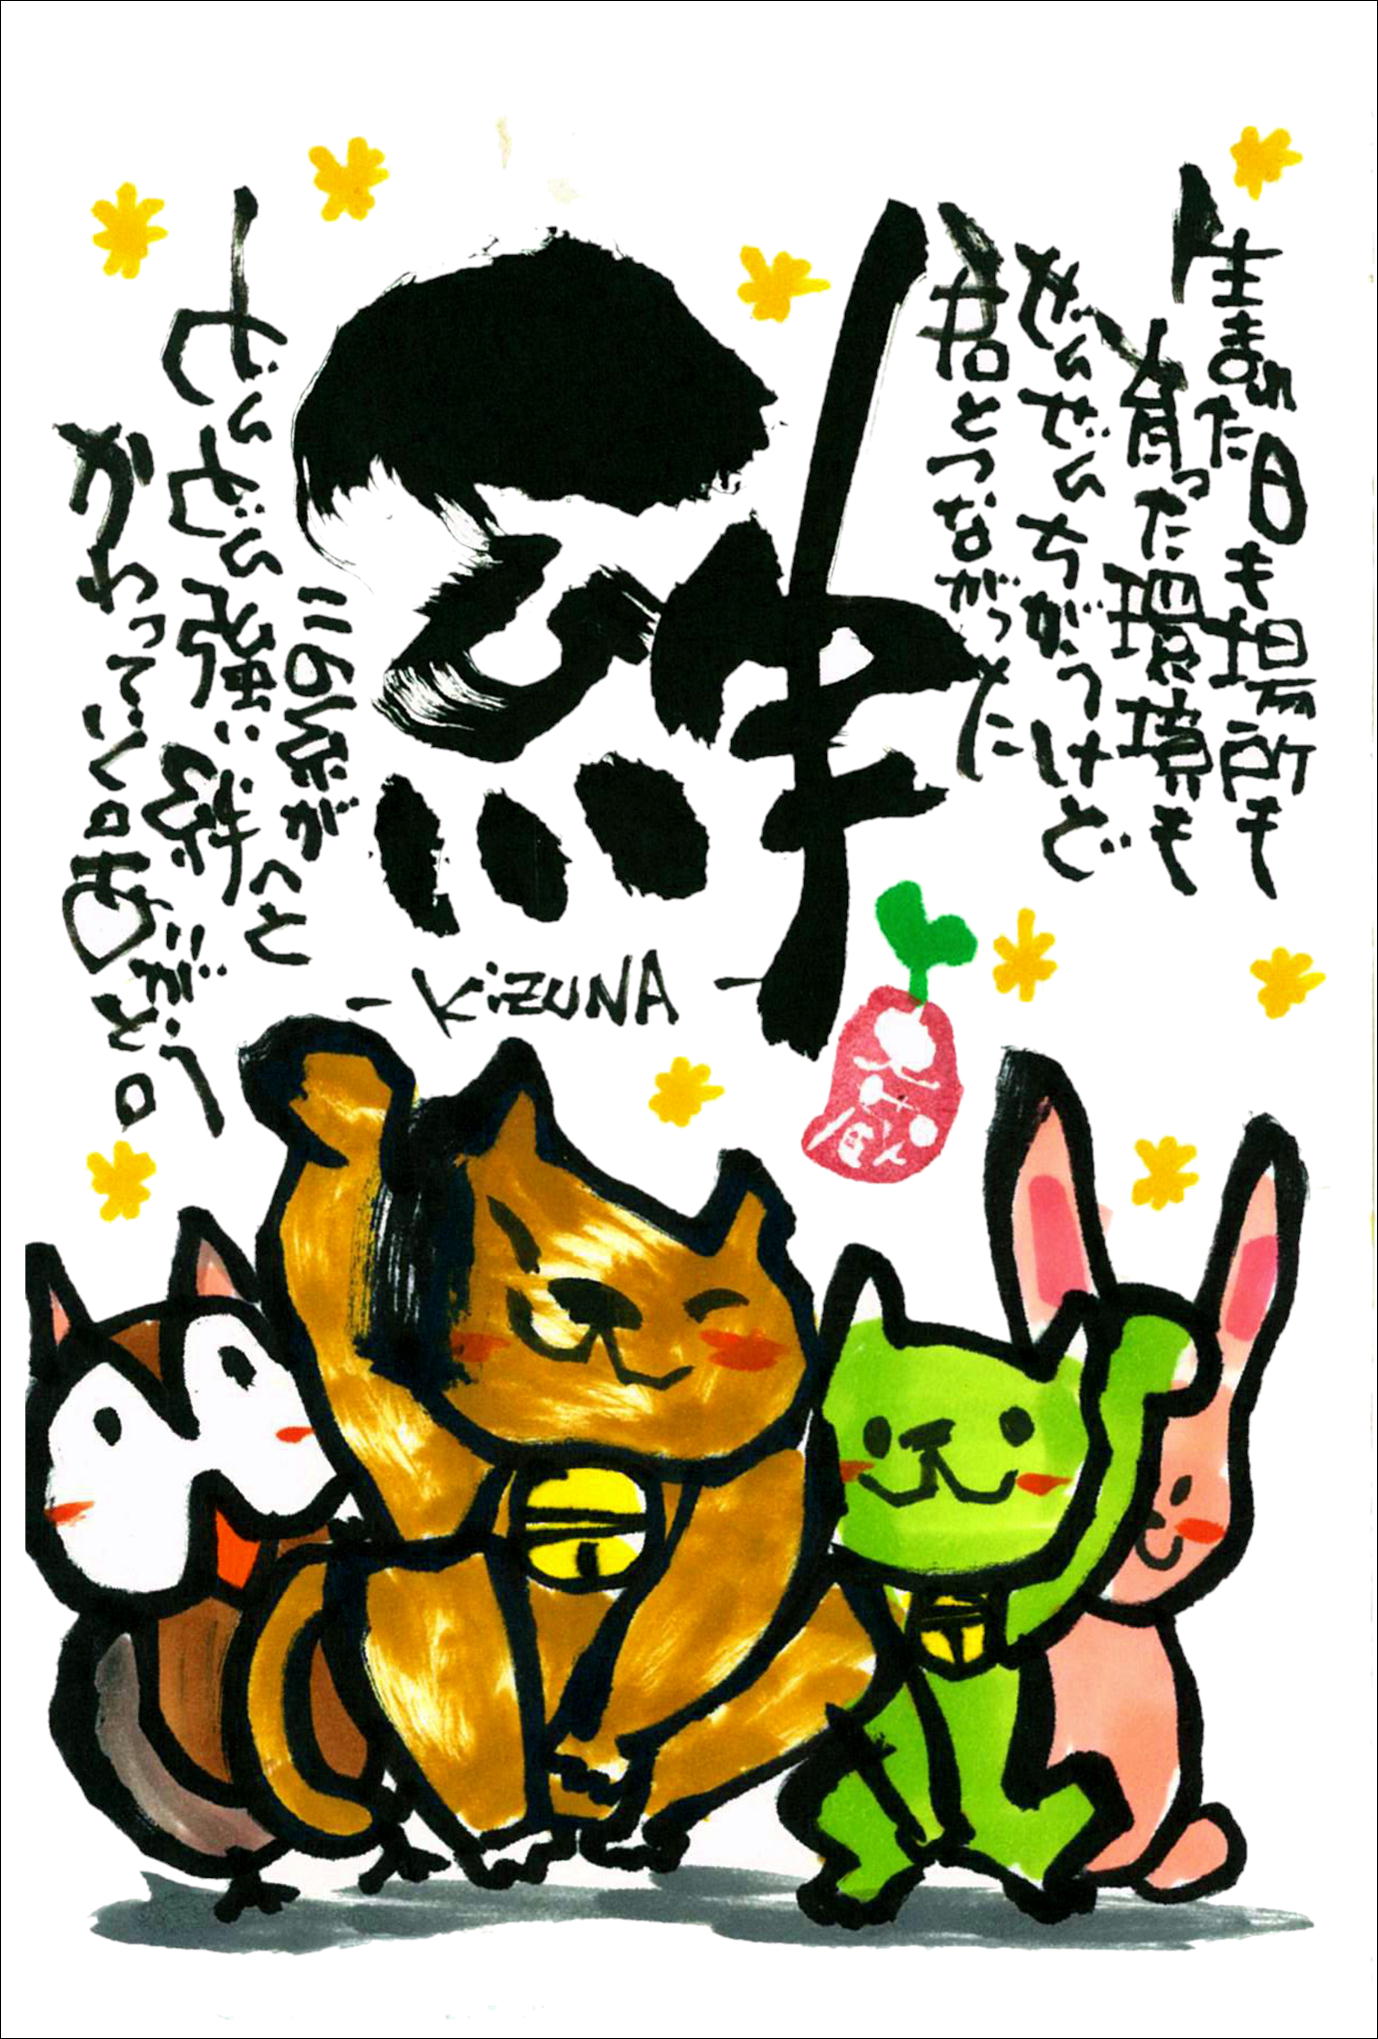 生まれた日も場所も
育った環境も
ぜんぜんちがうけど
君とつながった
絆
KiZUNA
この糸がもっと
どんどん強い絆へと
かわっていく。ありがとう。